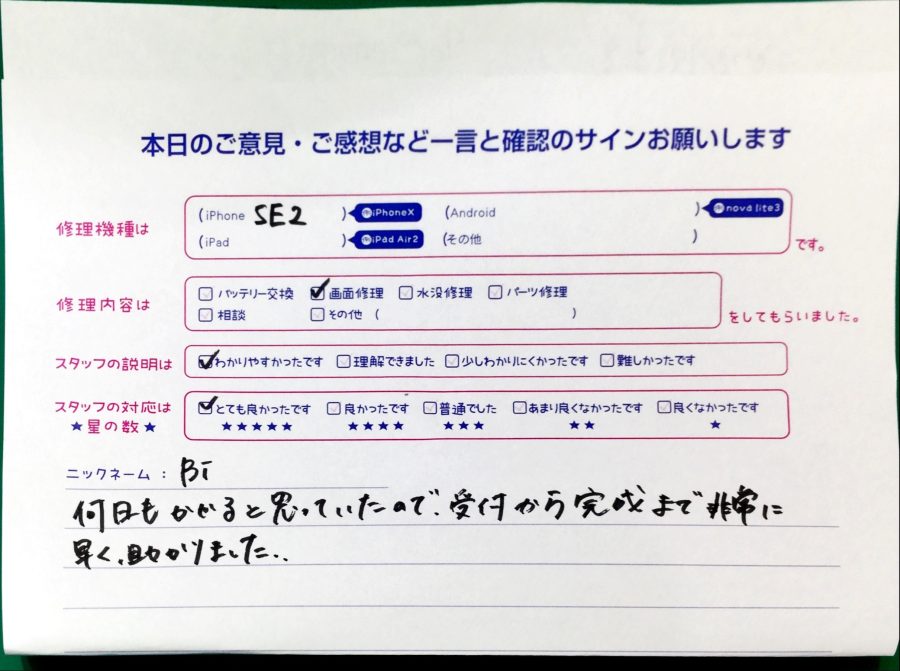 本日のご意見・ご感想など一言と確認のサインお願いします
修理機種は
(iPhone SE2 ) iPhoneX (Android ) nova lite3
(iPad ) iPad Air2 (その他 ) です。
修理内容は
バッテリー交換 画面修理 水没修理 パーツ修理
相談 その他 ( ) をしてもらいました。
スタッフの説明は わかりやすかったです 理解できました 少しわかりにくかったです 難しかったです
スタッフの対応は とても良かったです 良かったです 普通でした あまり良くなかったです 良くなかったです
★星の数★ ★★★★★ ★★★★ ★★★ ★★ ★
ニックネーム : Bi
何日もかかると思っていたので、受付から完成まで非常に
早く、助かりました..